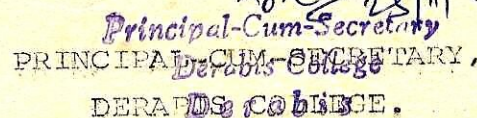 Principal-Cum-Secretary
PRINCIPAL-CUM-SECRETARY,
Derabis College
DERABIS COLLEGE.
Derabis